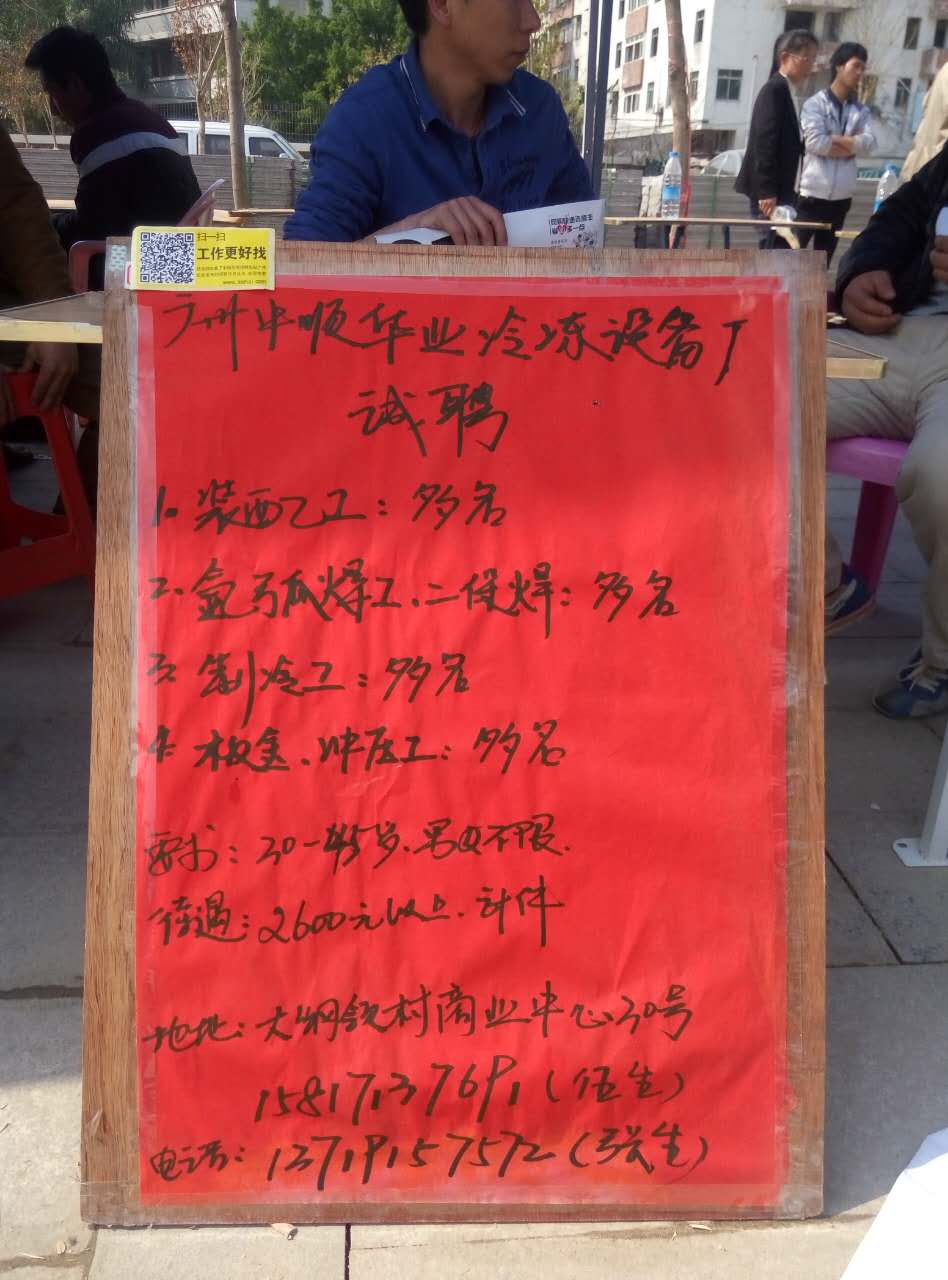 扫一扫
工作更好找
广州中顺华业冷冻设备厂
诚聘
1. 装配工：多名
2. 氩弧焊工、二保焊：多名
3. 制冷工：多名
4. 板金、冲压工：多名
要求：30-45岁、男女不限.
待遇：2600元以上.计件
地址：大纲领村商业中心30号
15817137691（伍生）
电话：13719157572（张生）